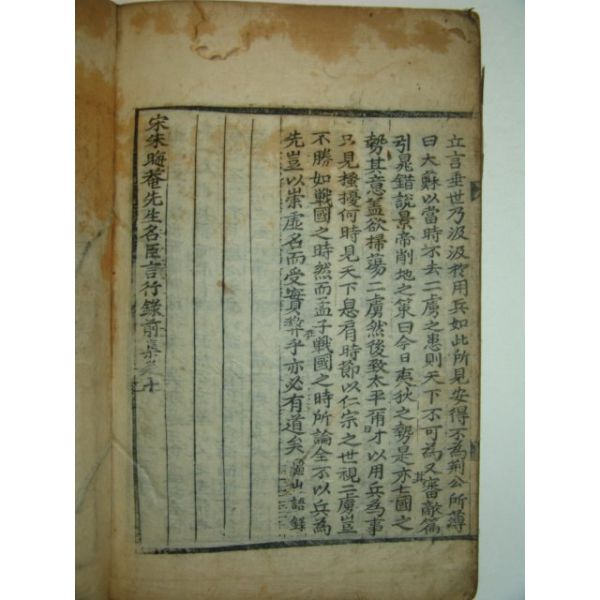 立言垂世乃汲汲於用兵如此所見安得不為荊公所薄
曰大蘇以當時不去二虜之患則天下不可為又審敵篇
引晁錯說景帝削地之策曰今日夷狄之勢是亦七國之
勢其意蓋欲掃蕩二虜然後致太平爾才以用兵為事
只見搔擾何時見天下息肩時節以仁宗之世視二虜豈
不勝如戰國之時然而孟子戰國之時所論全不以兵為
先豈以崇虛名而受實弊乎亦必有道矣 龜山語錄
宋朱晦菴先生名臣言行錄前集卷之十